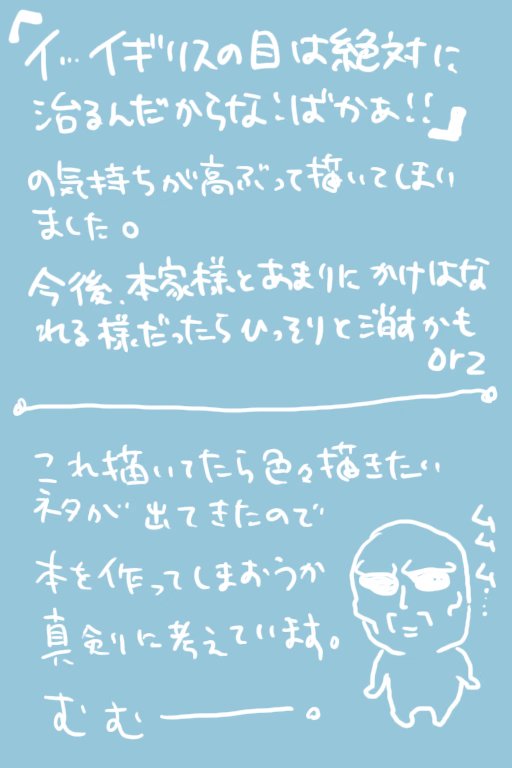 「イ…イギリスの目は絶対に
治るんだからな!ばかぁ!!」
の気持ちが高ぶって描いてしまい
ました。
今後、本家様とあまりにかけはな
れる様だったらひっそりと消すかも
orz
これ描いてたら色々描きたい
ネタが出てきたので
本を作ってしまおうか
真剣に考えています。
むむ――。
ムムム…